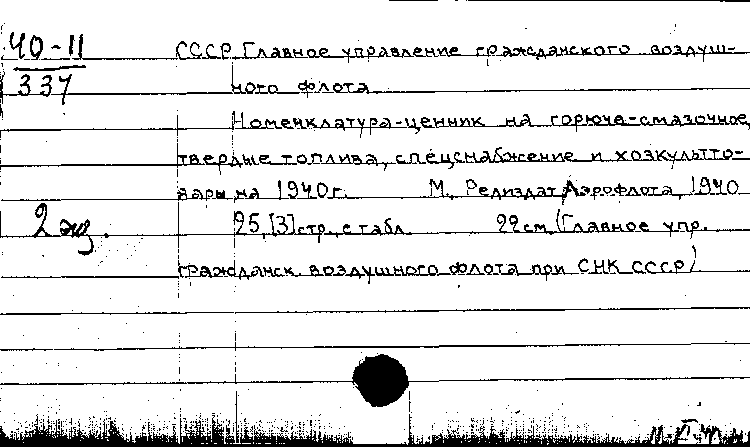 40-11
337
СССР. Главное управление гражданского воздуш-
ного флота
Номенклатура-ценник на горюче-смазочные,
твердые топлива, спецснабжение и хозкультто-
вары на 1940г. М., Редиздат Аэрофлота, 1940
2 экз.
25, [3] стр. с табл. 22см. (Главное упр.
гражданск. воздушного флота при СНК СССР)